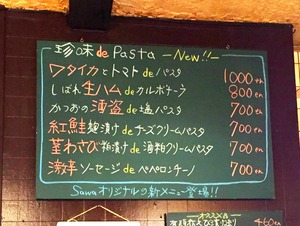 珍味 de Pasta —New!!—
ワタイカとトマト deパスタ 1000yen
しばれ生ハム deカルボナーラ 800yen
かつおの酒盗 de塩パスタ 700yen
紅鮭麹漬け deチーズクリームパスタ 700yen
茎わさび粕漬け de海鮮クリームパスタ 700yen
激辛 ソーセージ de ペペロンチーノ 700yen
Sawaオリジナルの新メニュー登場!!
オススメ